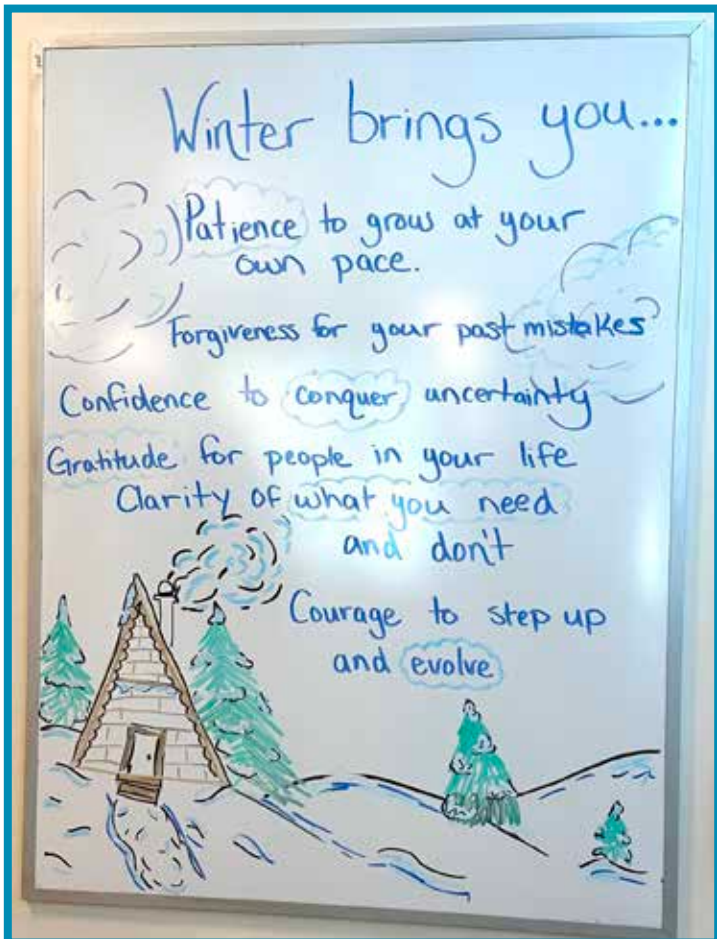 Winter brings you...
Patience to grow at your
own pace.
Forgiveness for your past mistakes
Confidence to conquer uncertainty
Gratitude for people in your life
Clarity of what you need
and don't
Courage to step up
and evolve